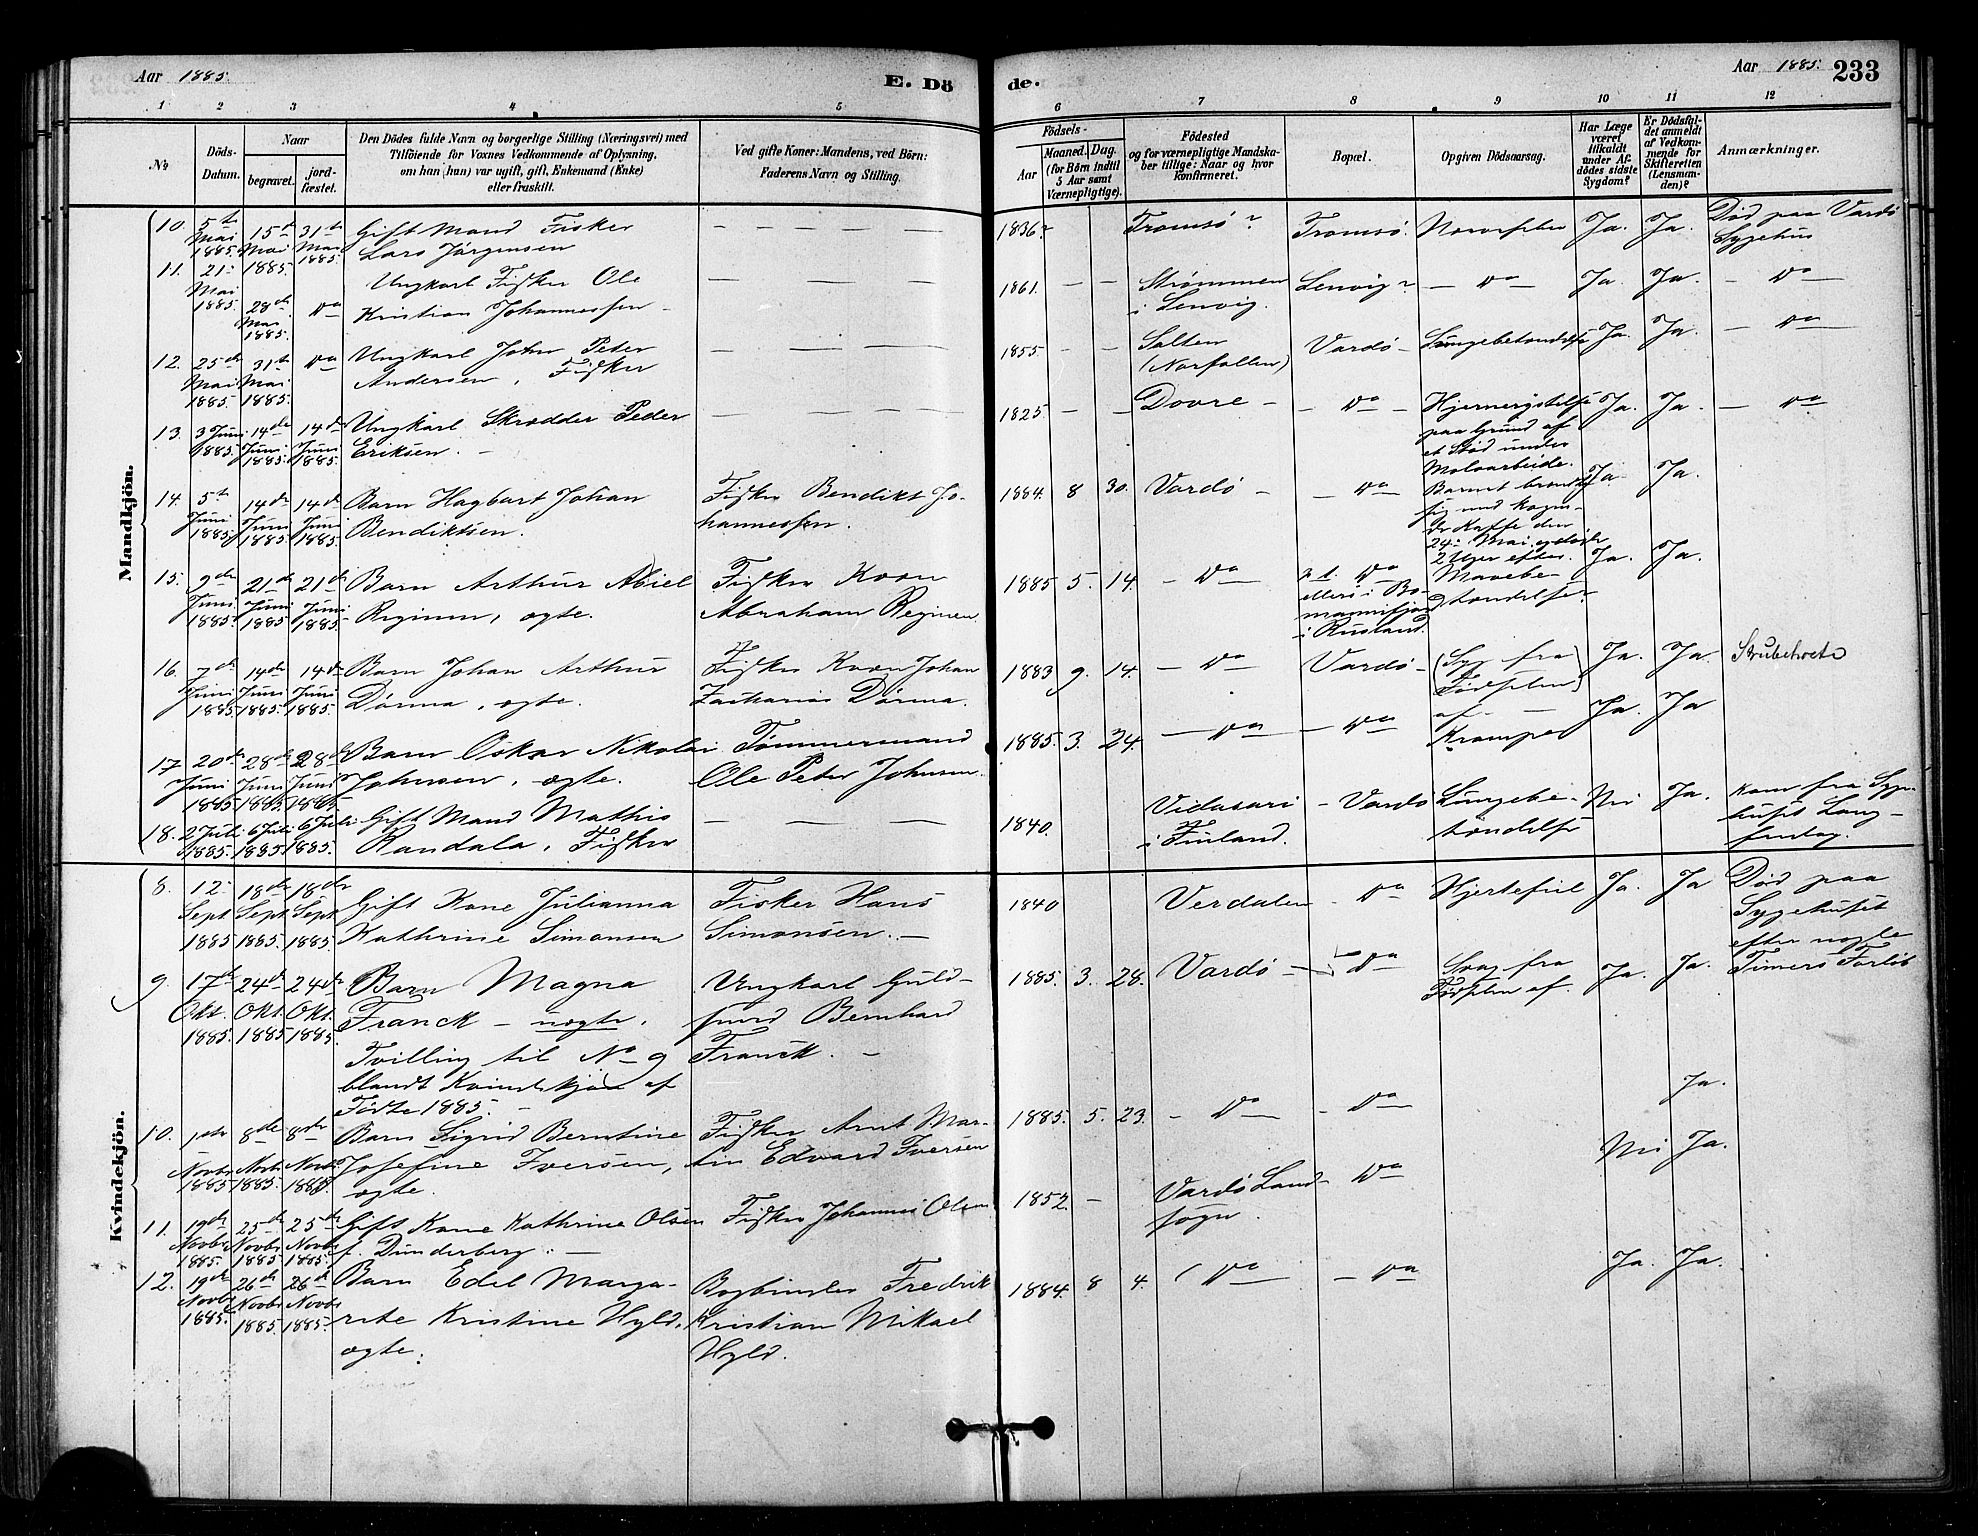 Aar 1885.
E. Dö
de.
Aar 1885. 233
1 2 3 4 5 6 7 8 9 10 11 12
No
Döds-
Datum.
Naar
begravet.
jord-
fæstet.
Den Dödes fulde Navn og borgerlige Stilling (Næringsvei) med
Tilföiende for Voxnes Vedkommende af Oplysning,
om han (hun) var ugift, gift, Enkemand (Enke)
eller fraskilt.
Ved gifte Koner: Mandens, ved Börn:
Faderens Navn og Stilling.
Födsels-
Aar
Maaned. Dag.
(for Börn indtil
5 Aar samt
Værnepligtige).
Födested
og for værnepligtige Mandska-
ber tillige: Naar og hvor
konfirmeret.
Bopæl.
Opgiven Dödsaarsag.
Har Læge
været
tilkaldt
under Af-
dödes sidste
Sygdom?
Er Dödsfal-
det anmeldt
af Vedkom-
mende for
Skifteretten
(Lensman-
den)?
Anmærkninger.
Mandkjön.
10. 5te Mai 1885. 15de Mai 1885. 31te Mai 1885. Gift Mand Fisker
Lars Jørgensen
— — — — —
1836? Tromsø? Tromsø. Ja. Ja. Død paa Vardø
Sygehus
11. 21. Mai 1885. 28de Mai 1885. Do Ungkarl Fisker Ole
Kristian Johannessen
1861. — — Strømmen
i Lenvig. Lenvig? — Do — Ja. Ja. — Do —
12. 25de Mai 1885. 31te Mai 1885. Do Ungkarl Johan Peter
Andersen, Fisker
1855. — — Salten
(Norfolden) Vardø — Lungebetændelse Ja. Ja. — Do
13. 3 Juni 1885. 14de Juni 1885. 14de Juni 1885. Ungkarl Skrædder Peder
Eriksen. —
1825 — — Dovre — — Do — Hjernerystelse
paa Grund af
et Stød under
Moloarbeide. Ja. Ja. — Do
14. 5te Juni 1885. 14de Juni 1885. 14de Juni 1885. Barn Hagbart Johan
Bendiktsen.
Fisker Bendikt Jo-
hannessen.
1884. 8 30. Vardø — — Do Barnet brændte
sig med kogen-
de Kaffe den
24. Mai, og døde
2 Uger efter. Ja. Ja.
15. 9de Juni 1885. 21de Juni 1885. 21de Juni 1885. Barn Arthur Abiel
Reginen, ægte.
Fisker Kvæn
Abraham Reginen.
1885 5. 14. — Do — z. t. Do
ellers i Bo-
mannifjord
i Rusland. Mavebe-
tændelse. Ja. Ja.
16. 7de Juni 1885. 14de Juni 1885. 14de Juni 1885. Barn Johan Arthur
Dørma, ægte.
Fisker Kvæn Johan
Zacharias Dørma.
1883 9. 14. — Do — Vardø — (Syg fra
Fødslen) Ja. Ja. Strubehoste
17. 20de Juni 1885. 28de Juni 1885. 28de Juni 1885. Barn Oskar Nikolai
Johnsen, ægte.
Tømmermand
Ole Peter Johnsen.
1885. 3. 24. — Do — — Do af —
Krampe Ja. Ja
18. 2 Juli 1885. 6 Juli 1885. 6 Juli 1885. Gift Mand Mathis
Kandala, Fisker
— — — —
1840. Vidasari
i Finland. — Vardø Lungebe-
tændelse Nei Ja. Kom fra Syge-
huset Lang-
fredag.
Kvindekjön.
8. 12. Sept. 1885 18de Sept. 1885. 18de Sept. 1885. Gift Kone Julianna
Kathrine Simonsen
Fisker Hans
Simonsen. —
1840 Verdalen — Do Hjertefeil Ja. Ja Død paa
Sygehuset
efter nogle
Timers Forløb
9. 17de Okt. 1885. 24de Okt. 1885 24de Okt. 1885. Barn Magna
Franck — uægte.
Tvilling til No 9
blandt Kvindekjøn af
Fødte 1885. —
Ungkarl Guld-
smed Bernhard
Franck. —
1885. 3. 28. Vardø — Do — Svag fra
Fødslen af. Ja. Ja.
10. 1ste Novbr 1885 8de Novbr 1885. 8de Novbr 1885. Barn Sigrid Berntine
Josefine Iversen,
ægte.
Fisker Arnt Mar-
tin Edvard Iversen
1885. 5. 23. — Do — — Do — Ja.
11. 19de Novbr 1885. 25de Novbr 1885 25de Novbr 1885. Gift Kone Kathrine Olsen
f. Dunderberg. —
Fisker Johannes Olsen
1852. — Vardø Land-
sogn. Do — Nei Ja.
12. 19de Novbr 1885. 26de Novbr 1885. 26de Novbr 1885. Barn Edel Marga-
rete Kristine Hyld.
ægte.
Bogbinder Fredrik
Kristian Mikael
Hyld.
1884. 8 4. Do — — Do Ja. Ja.